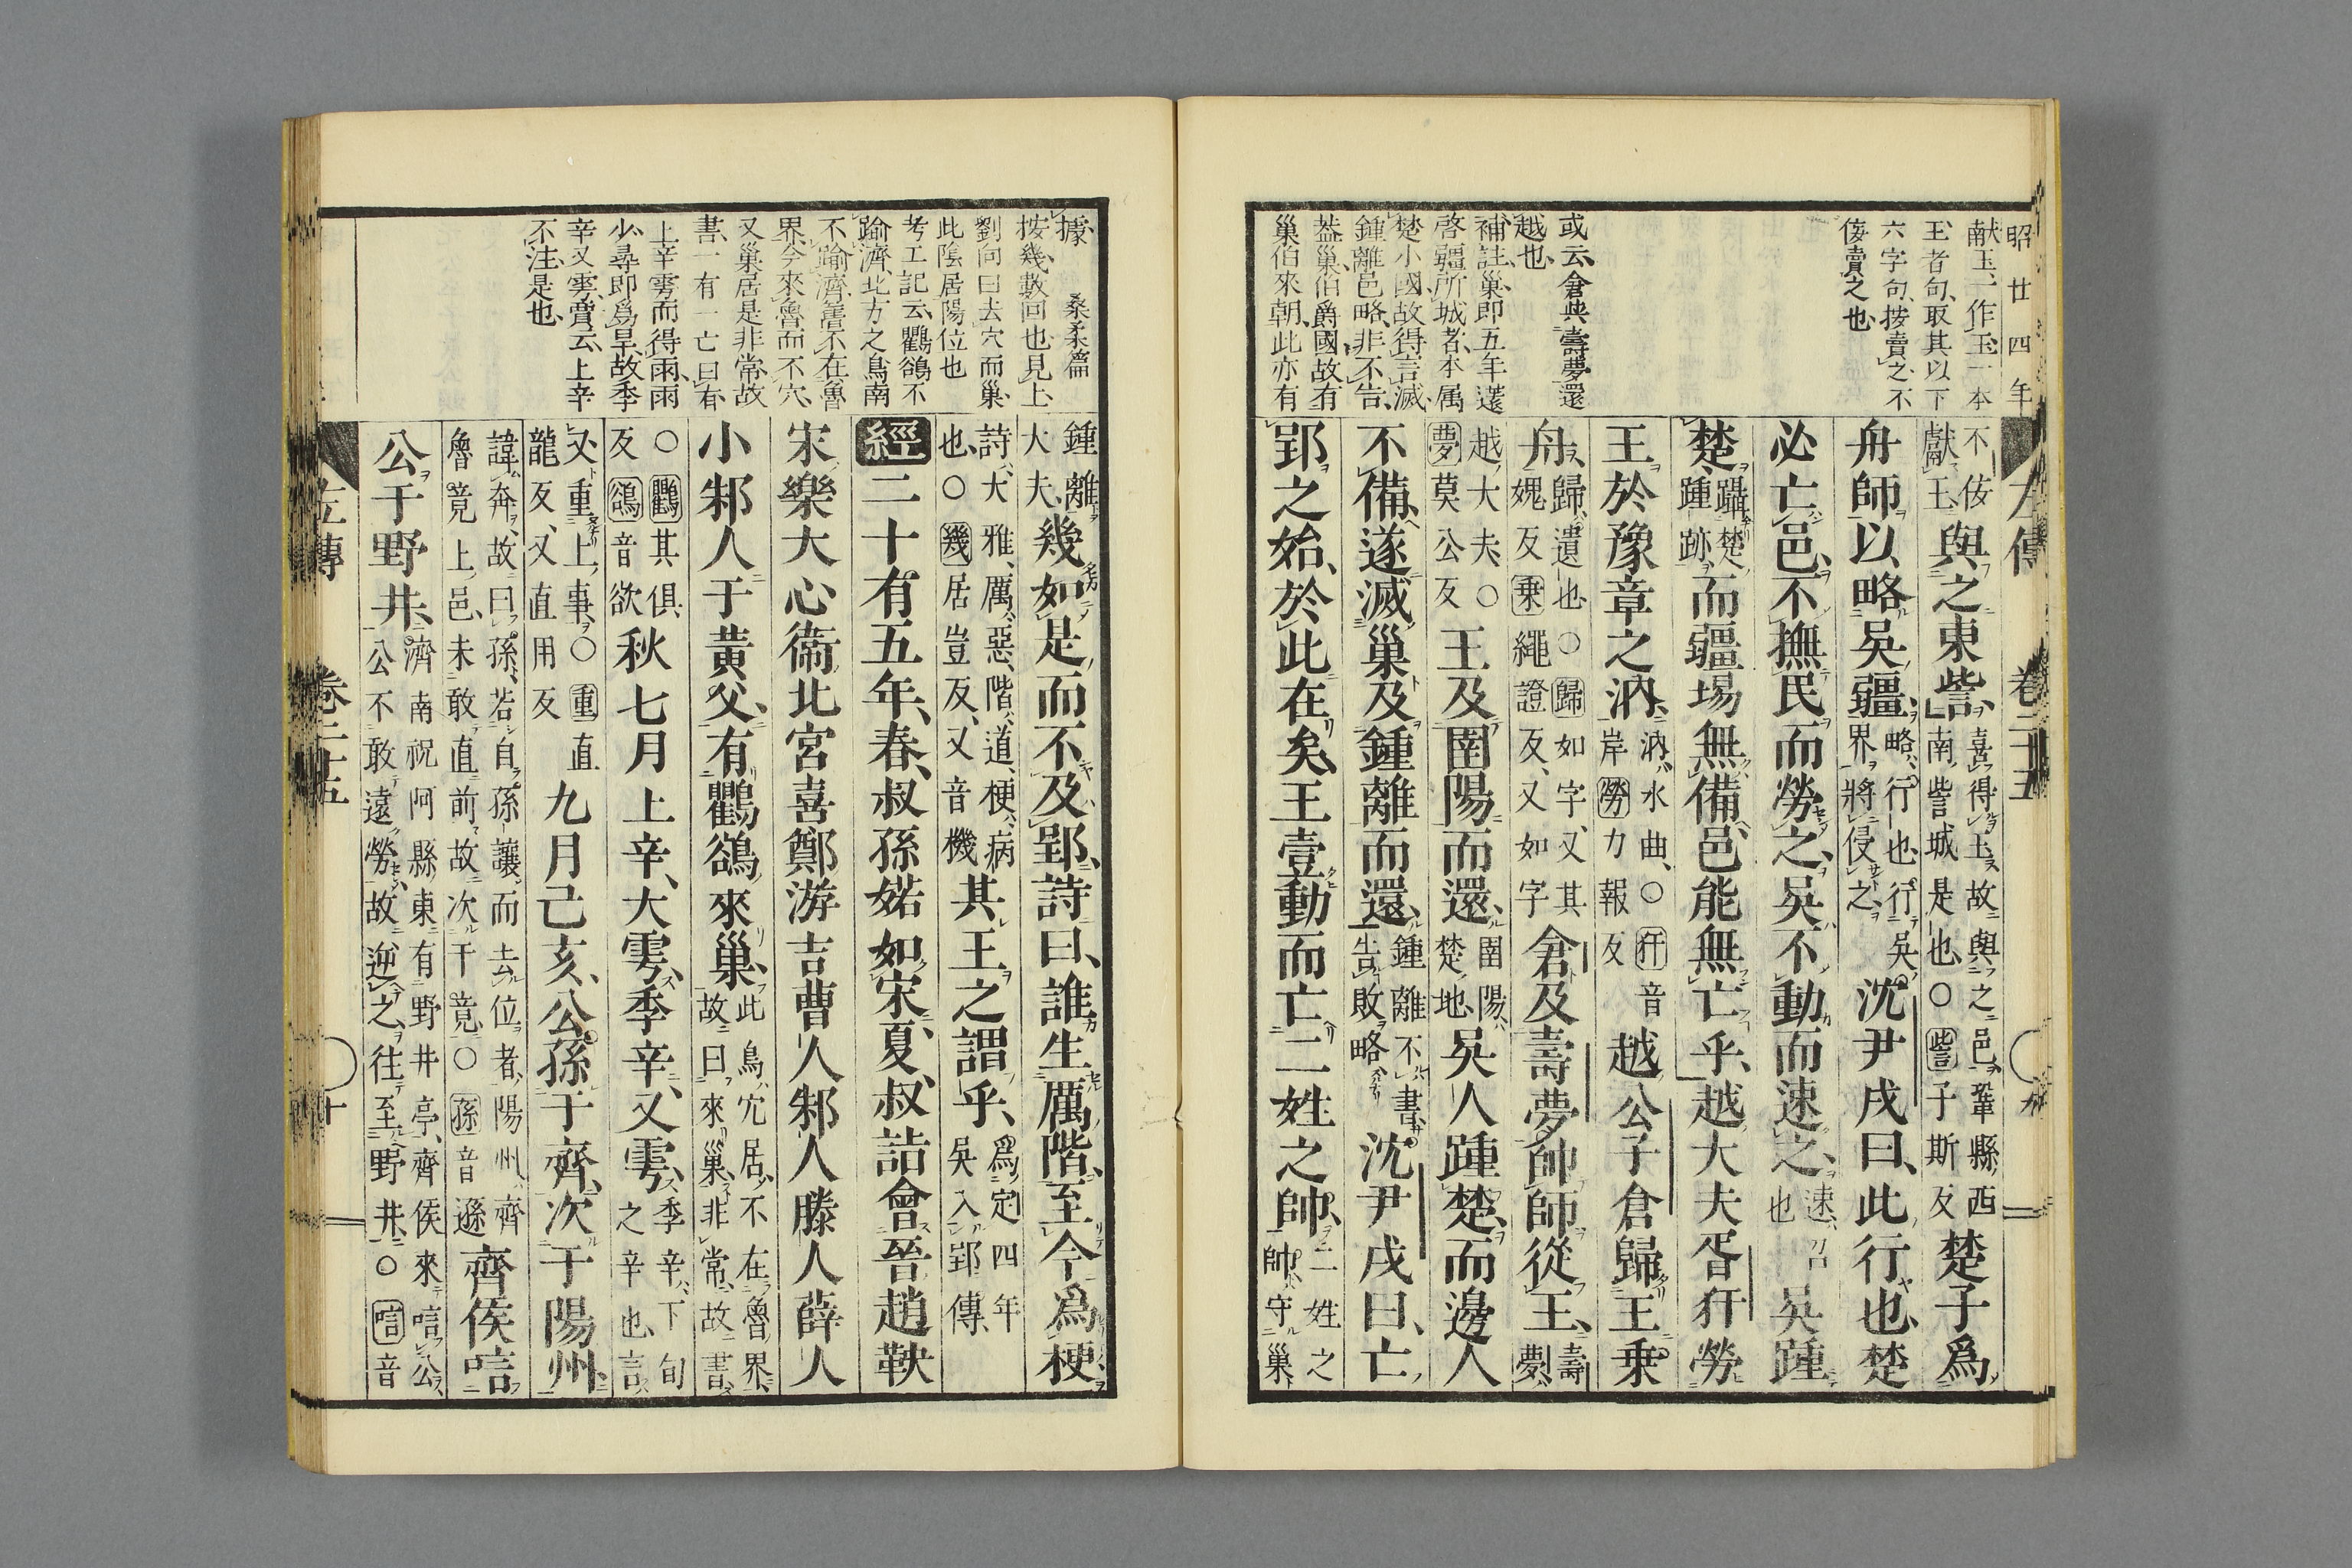 昭廿四年
献玉、一作玉玉一本
王者句、取其以下
六字句、按賣之不
佞賣之也
或云、倉與壽夢還
越也、
補註、巢即五年薳
啓疆所城者、本屬
楚小國、故得言滅、
鍾離邑略、非不告、
蓋巢伯爵國、故有
巢伯來朝、此亦有
左傳 卷二十五
不佞獻王、與之東訾、喜得玉故與之邑、鞏縣西南訾城是也、○訾子斯反楚子爲
舟師以略吳疆、略、行也、行吳界、將侵之、沈尹戌曰、此行也、楚
必亡邑、不撫民而勞之、吳不動而速之、速、召也吳踵
楚、躡楚踵跡、而疆場無備、邑、能無亡乎、越大夫胥犴勞
王於豫章之汭、汭、水曲、○犴音岸勞力報反越公子倉歸王乘
舟、歸、遺也、○歸如字、又其媿反乘繩證反、又如字倉及壽夢帥師從王、壽夢、
越大夫、○夢莫公反王及圉陽而還、圉陽、楚地吳人踵楚、而邊人
不備、遂滅巢及鍾離而還、鍾離不書、告敗略、沈尹戌曰、亡
郢之始、於此在矣、王壹動而亡二姓之帥、二姓之帥、守巢、
據
桑柔篇
按幾、數回也、見上
劉向曰、去穴而巢
此陰居陽位也
考工記云、鸜鵒不
踰濟、北方之鳥南
不踰濟、舊不在魯
界、今來魯而不穴、
又巢居是非常、故
書、一有一亡曰有
上辛雩而得雨、雨
少、尋即爲旱、故季
辛又雩、賞云、上辛
不注是也、
鍾離大夫、幾如是而不及郢、詩曰、誰生厲階、至今爲梗、
詩、大雅、厲、惡、階、道、梗、病也、○幾居豈反、又音機其王之謂乎、爲定四年吳入郢傳、
經二十有五年、春、叔孫婼如宋、夏、叔詣會晉趙鞅
宋樂大心衞北宮喜鄭游吉曹人邾人滕人薛人
小邾人于黃父、有鸜鵒來巢、此鳥穴居、不在魯界、故曰來巢、非常、故書、
○鸜其俱反鵒音欲秋七月上辛、大雩、季辛、又雩、季辛、下旬之辛也、言
又重上事、○重直龍反、又直用反九月己亥、公孫于齊、次于陽州、
諱奔、故曰孫、若自孫讓而去位者、陽州、齊魯竟上邑、未敢直前、故次于竟、○孫音遜齊侯唁
公于野井、濟南祝阿縣東有野井亭、齊侯來唁公、公不敢遠勞、故逆之、往至野井、○唁音
左傳 卷二十五 十